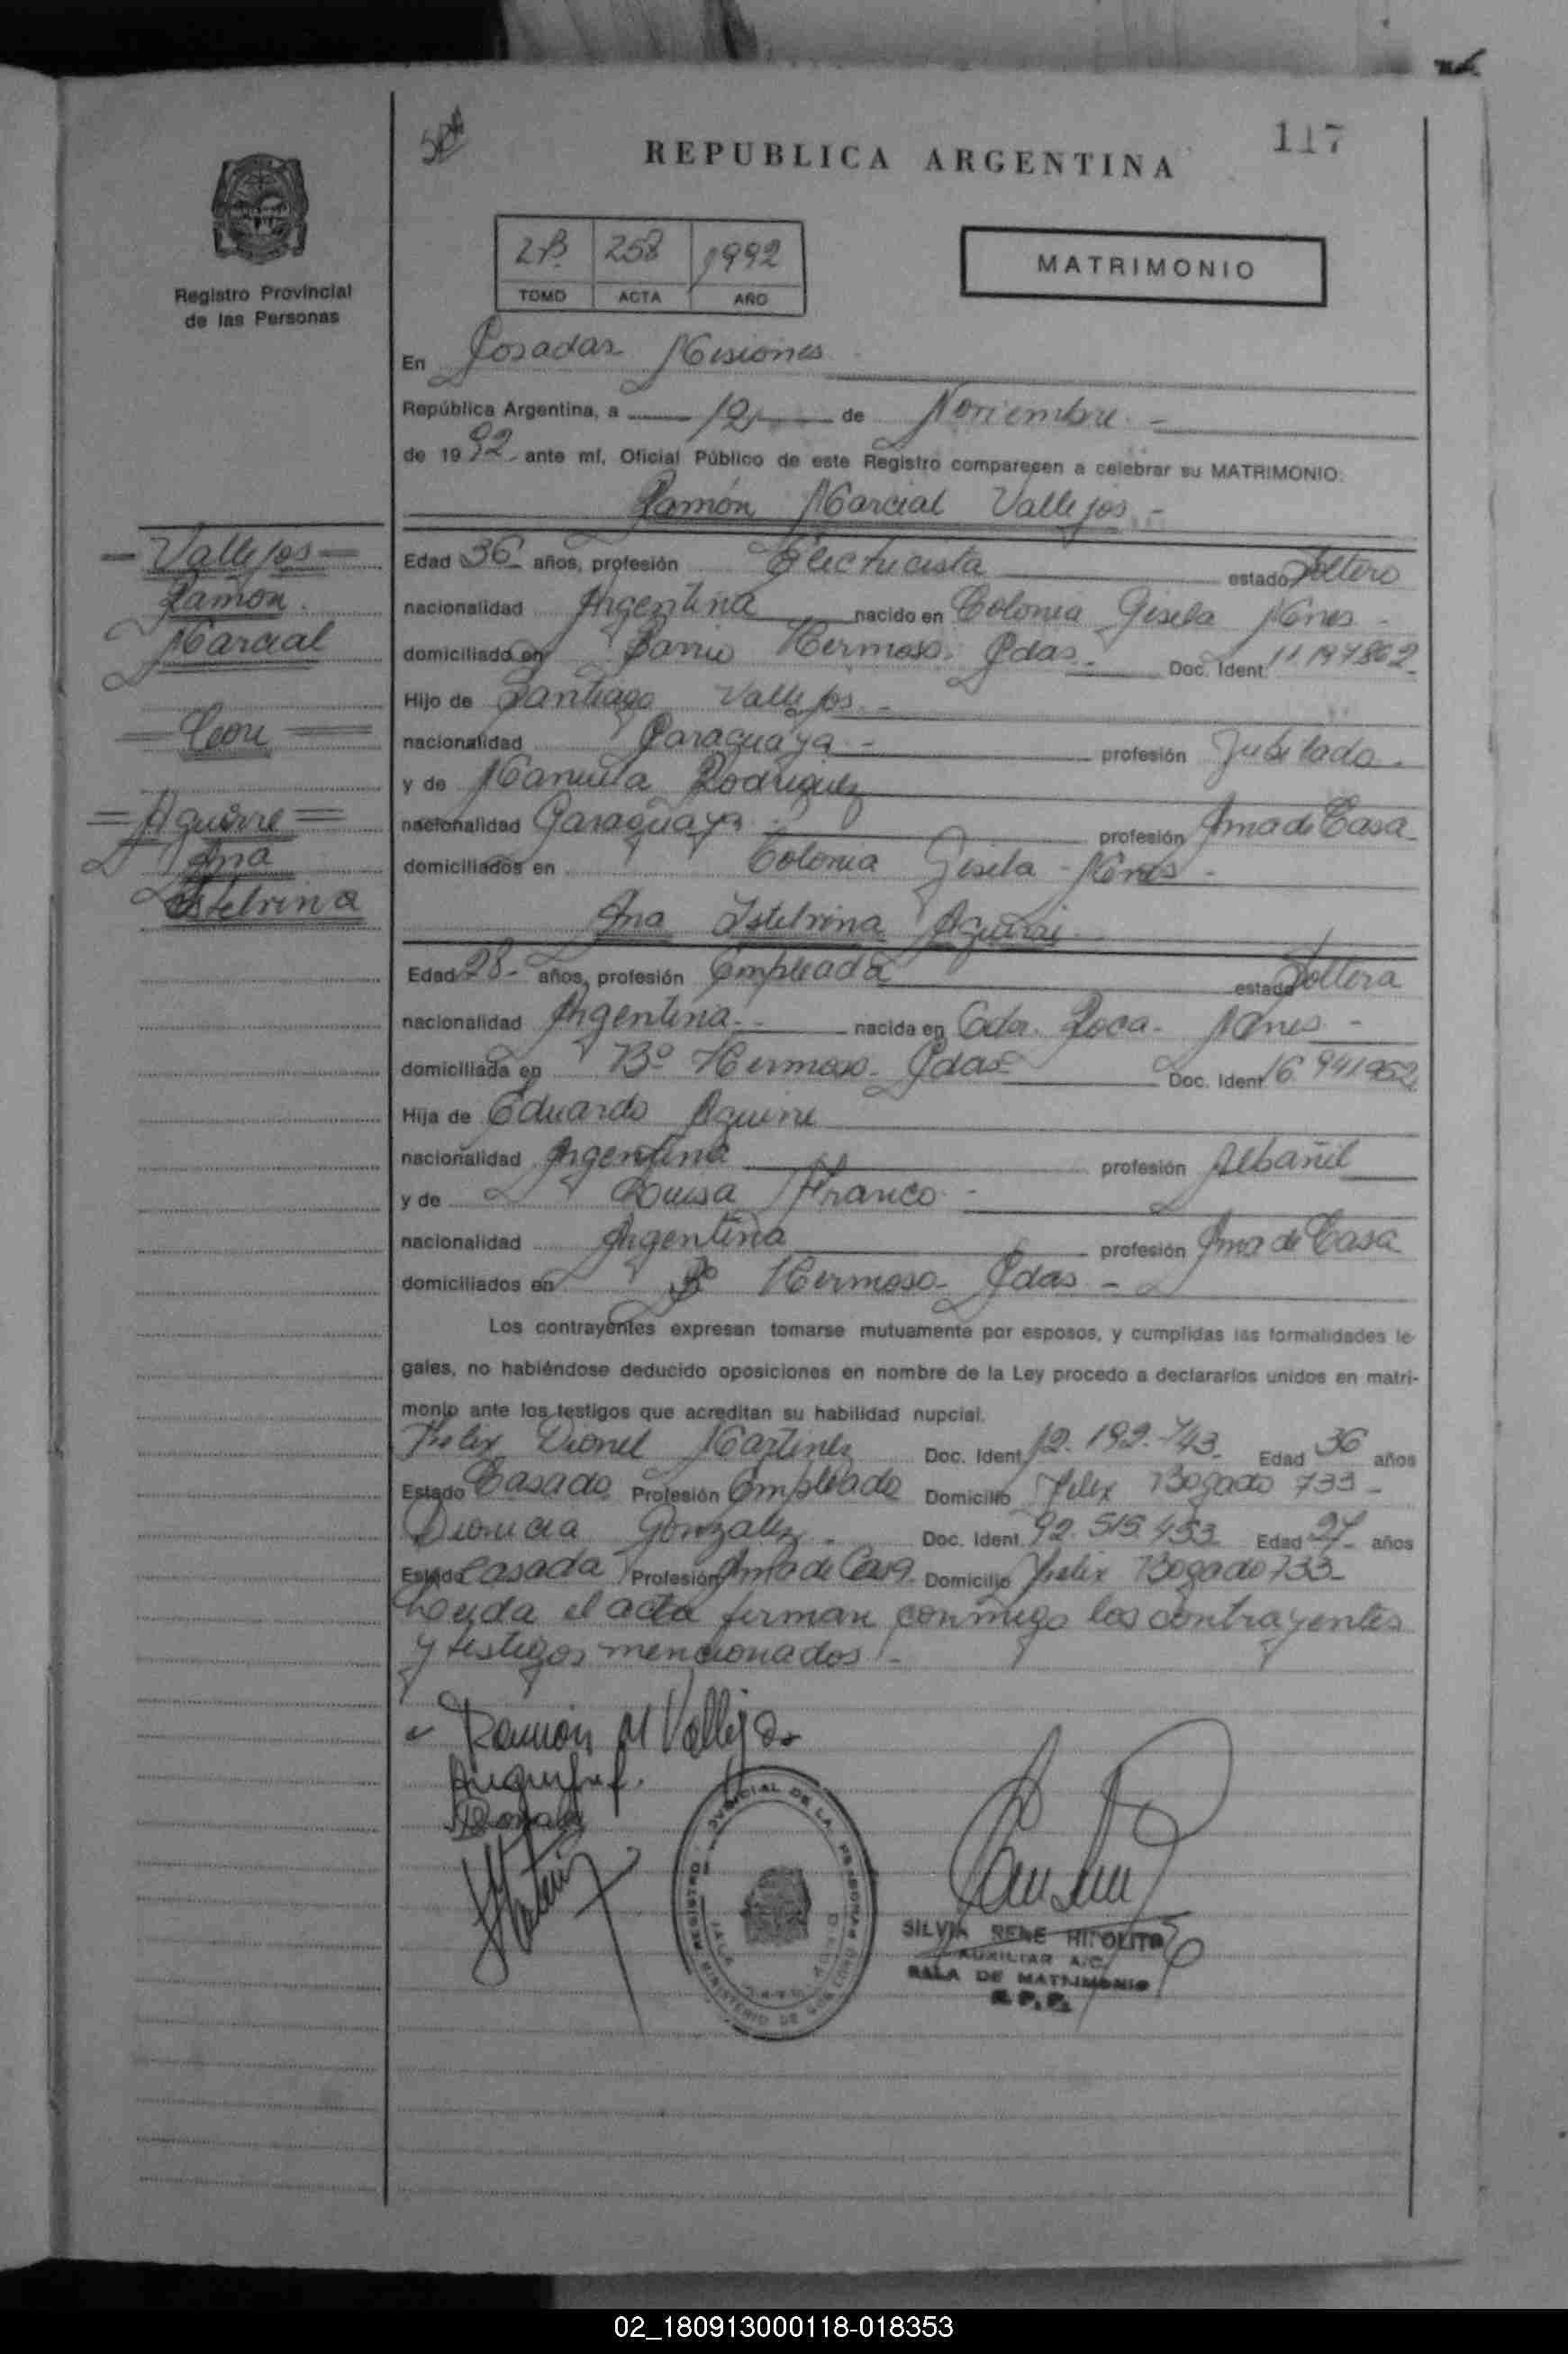 117
REPUBLICA ARGENTINA
2B. 258 1992
TOMO ACTA AÑO
MATRIMONIO
Registro Provincial
de las Personas
En Posadas Misiones
República Argentina, a 12 de Noviembre.-
de 1992 ante mí, Oficial Público de este Registro comparecen a celebrar su MATRIMONIO:
Ramón Marcial Vallejos.-
Vallejos
Ramón.
Marcial
Con
Aguirre
Ana
Estelrina
Edad 36 años, profesión Electricista estado Soltero
nacionalidad Argentina nacido en Colonia Gisela Mnes.-
domiciliado en Barrio Hermoso. Pdas.- Doc. Ident. 11.197.862
Hijo de Santiago Vallejos.-
nacionalidad Paraguaya.- profesión Jubilado.
y de Manuela Rodriguez
nacionalidad Paraguaya profesión Ama de Casa
domiciliados en Colonia Gisela - Mnes.-
Ana Estelrina Aguirre
Edad 28- años, profesión Empleada estado Soltera
nacionalidad Argentina.- nacida en Gdor. Roca. Mnes.-
domiciliada en Bº Hermoso. Pdas- Doc. Ident. 16.941.952
Hija de Eduardo Aguirre
nacionalidad Argentina profesión Albañil
y de Luisa Franco.-
nacionalidad Argentina profesión Ama de Casa
domiciliados en Bº Hermoso- Pdas.-
Los contrayentes expresan tomarse mutuamente por esposos, y cumplidas las formalidades le-
gales, no habiéndose deducido oposiciones en nombre de la Ley procedo a declararlos unidos en matri-
monio ante los testigos que acreditan su habilidad nupcial.
Felix Dionel Martinez Doc. Ident. 12.192.743 Edad 36 años
Estado Casado Profesión Empleado Domicilio Felix Bogado 733-
Dionicia Gonzalez.- Doc. Ident. 92.515.453 Edad 27- años
Estado Casada Profesión Ama de Casa Domicilio Felix Bogado 733-
Leída el acta firman conmigo los contrayentes
y testigos mencionados.-
Ramón M Vallejos
REGISTRO JUDICIAL DE LA PERSONAS
MINISTERIO DE GOBIERNO
SILVIA RENE HIPOLITO
AUXILIAR A/C.
SALA DE MATRIMONIO
R.P.P.
02_180913000118-018353